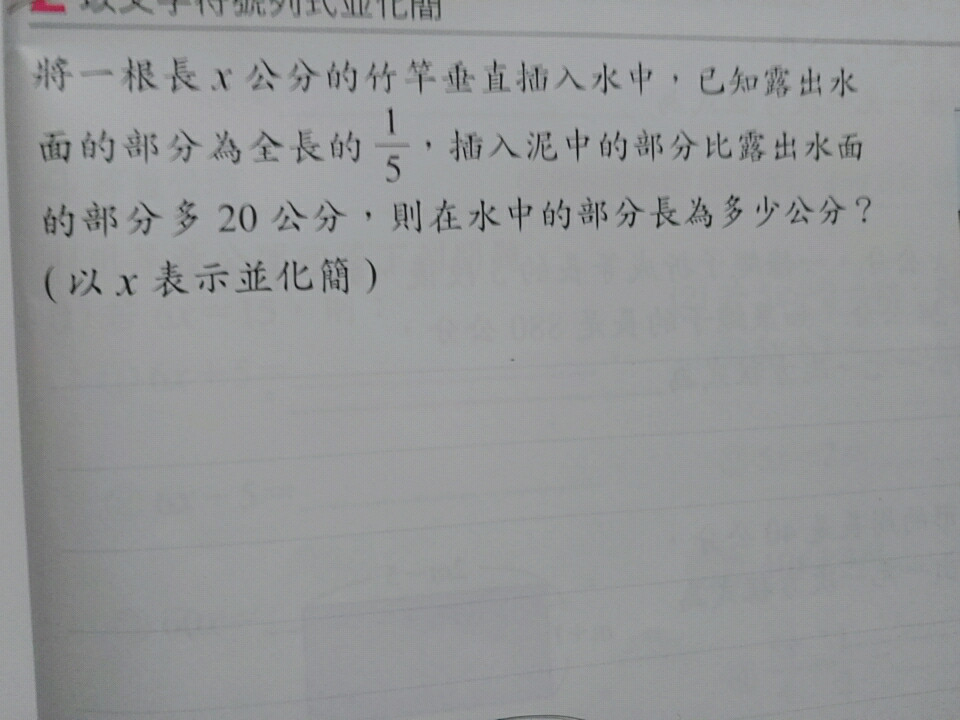 以文字符號列式並化簡
將一根長 x 公分的竹竿垂直插入水中，已知露出水
面的部分為全長的 1/5，插入泥中的部分比露出水面
的部分多 20 公分，則在水中的部分長為多少公分？
(以 x 表示並化簡)